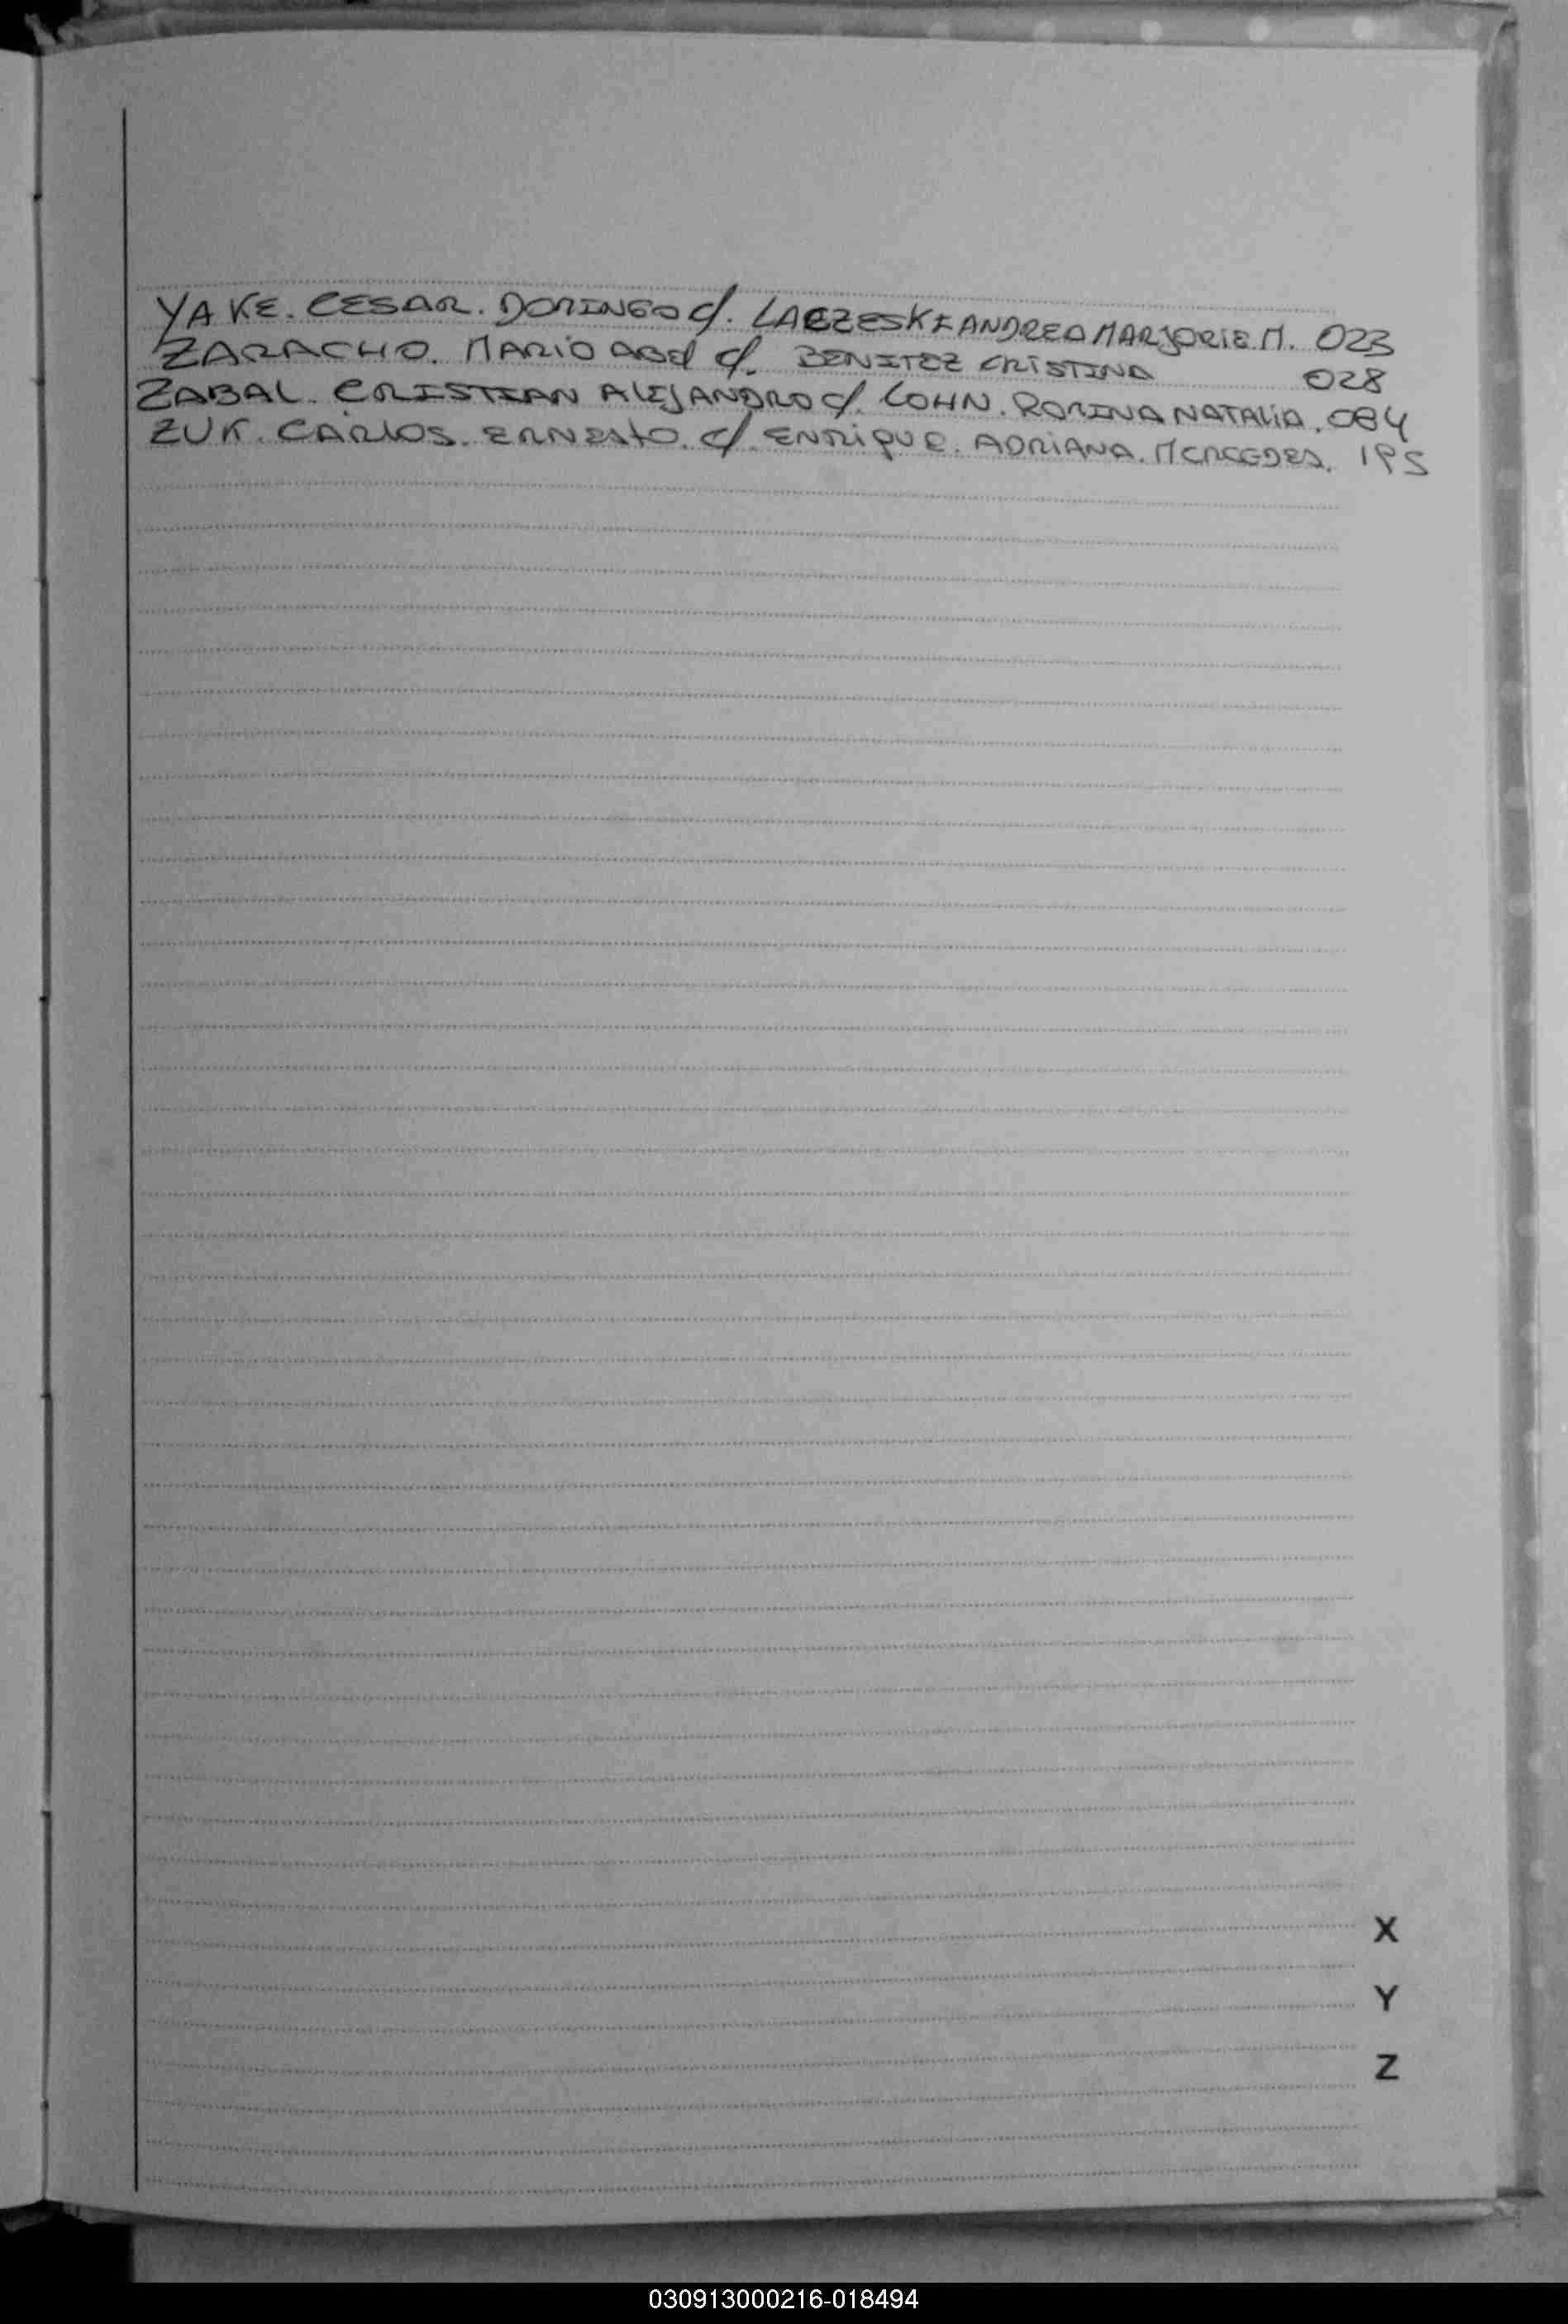 YAKE. CESAR. DOMINGO c/. LACZESKI ANDREA MARJORIE M. 023
ZARACHO. MARIO ABEL c/. BENITEZ CRISTINA 028
ZABAL. CRISTIAN ALEJANDRO c/. COHN. ROMINA NATALIA. 084
ZUK. CARLOS. ERNESTO. c/. ENRIQUE. ADRIANA. MERCEDES. 195
X
Y
Z
030913000216-018494